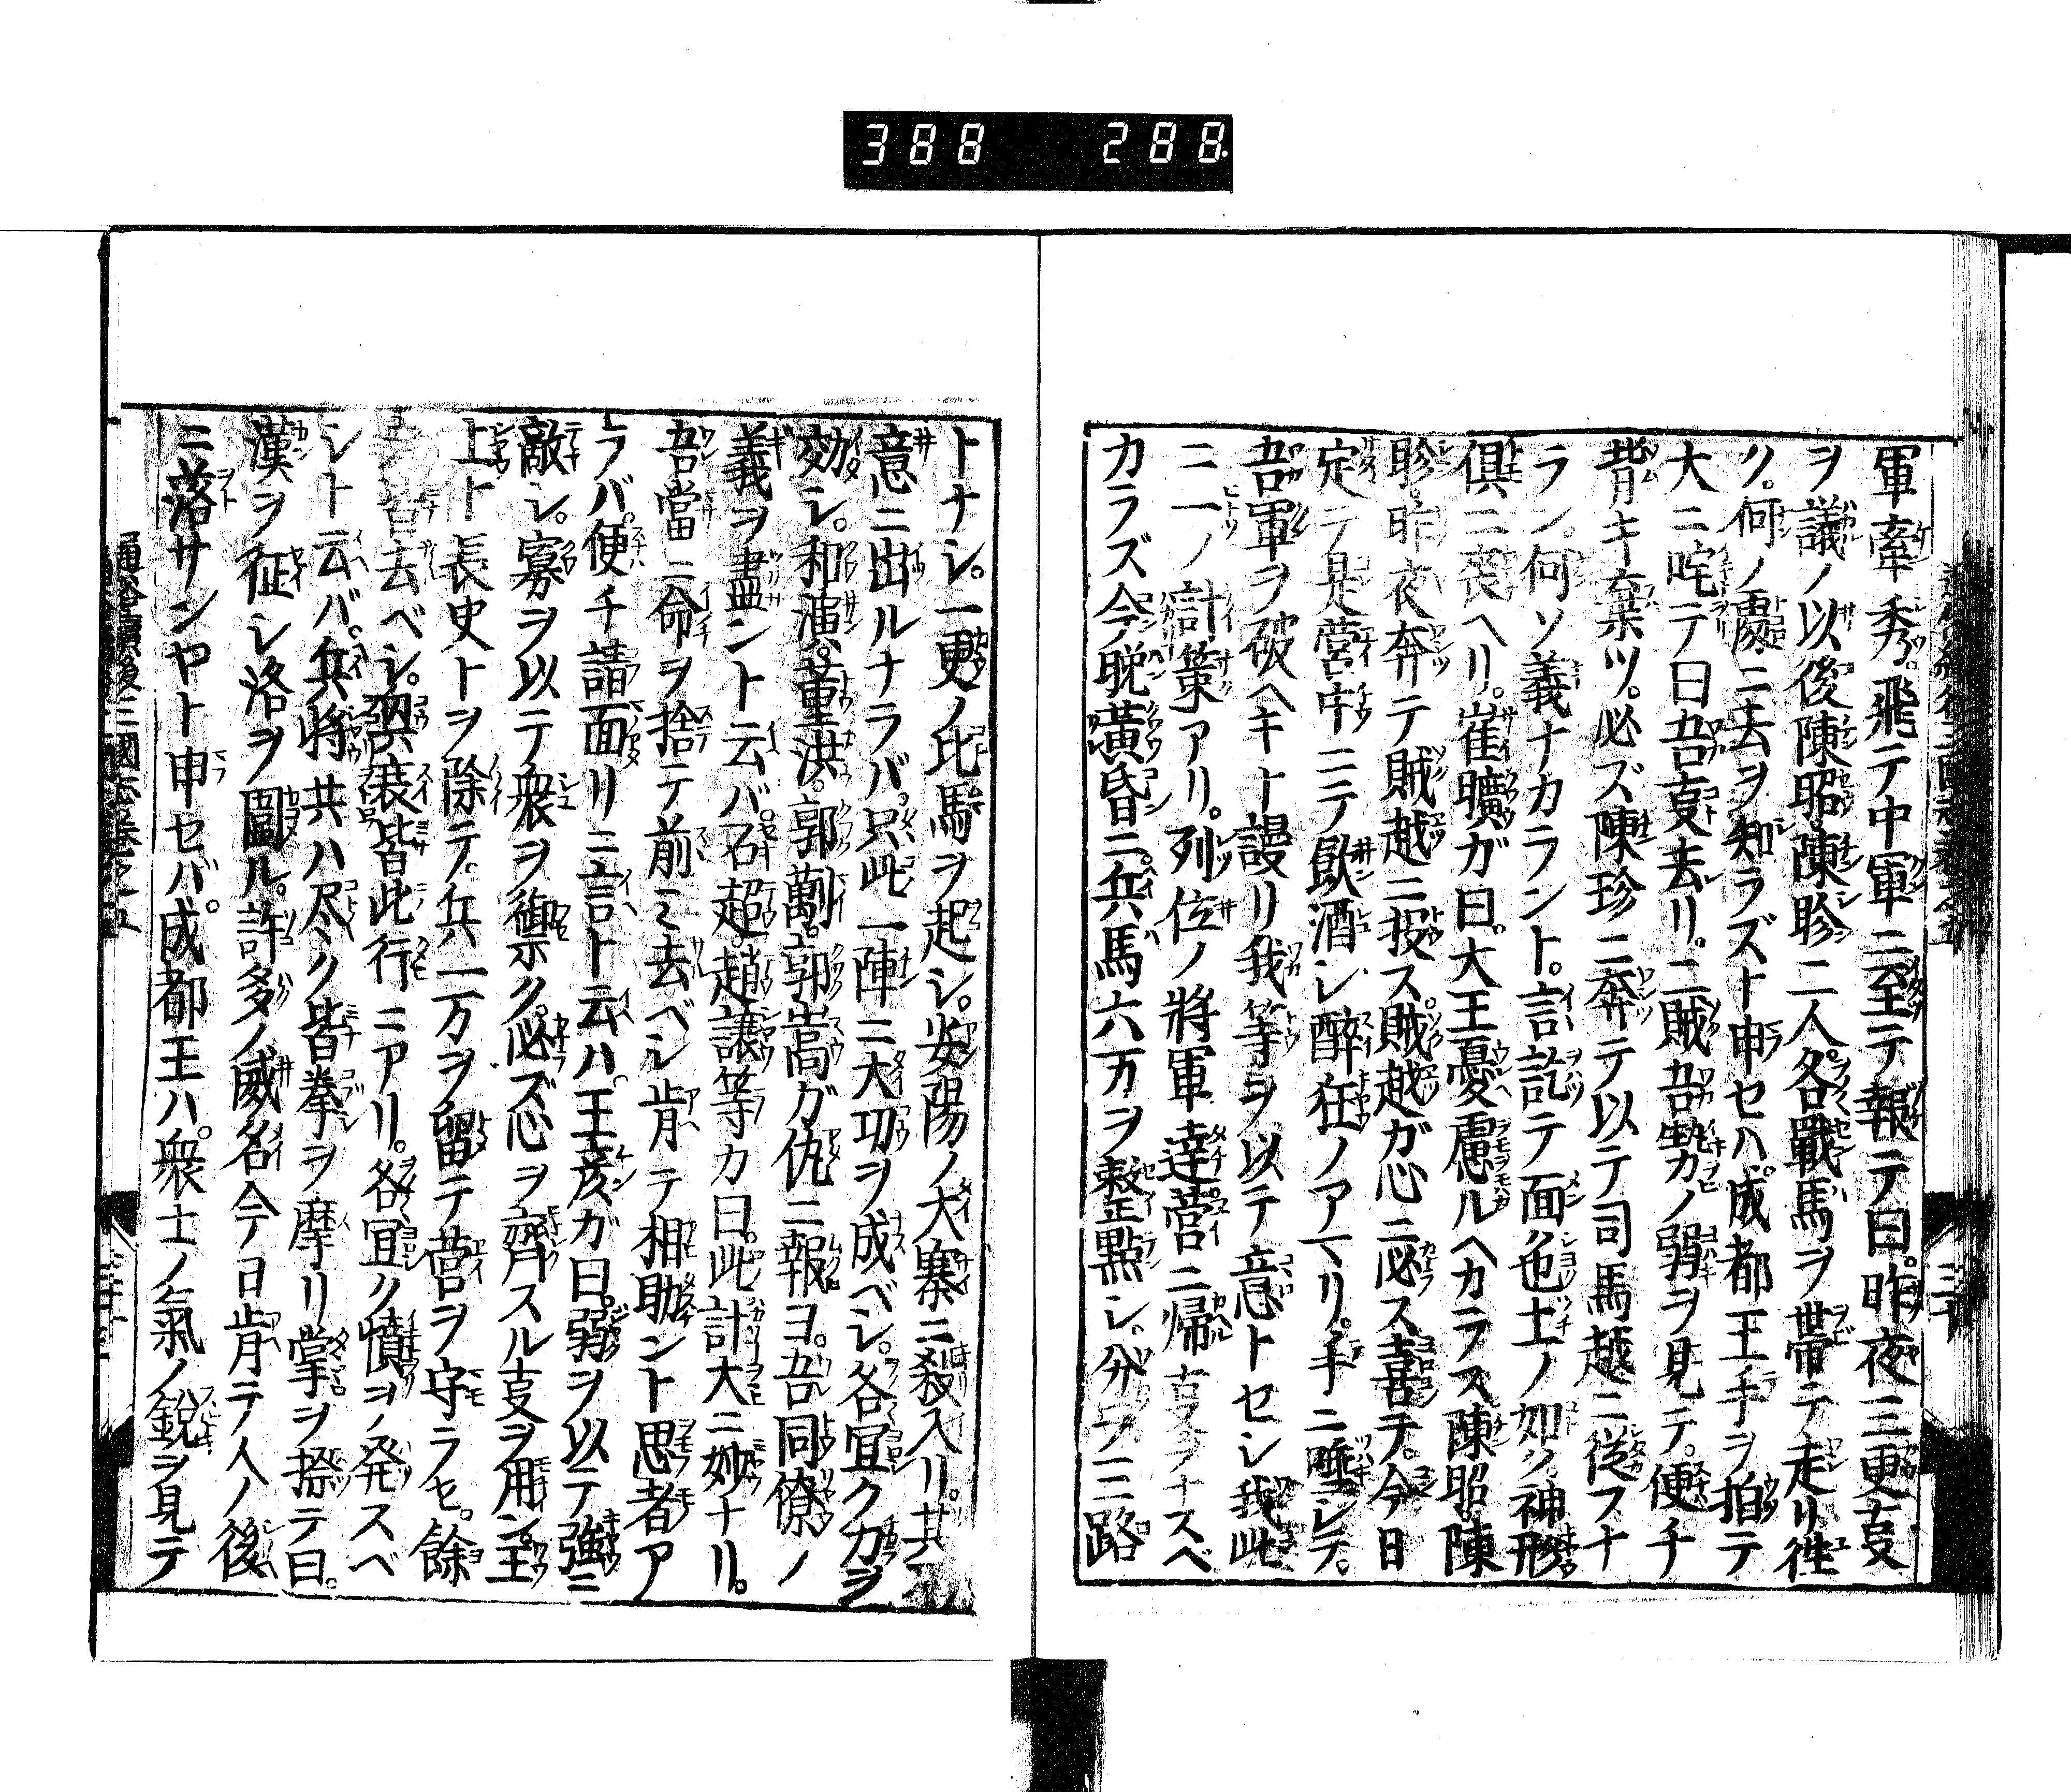 388 288.
軍牽秀飛テ中軍ニ至テ報テ曰。昨夜三更叓
ヲ議ノ以後陳昭陳眕二人各戰馬ヲ帯テ走リ徃
ク。何ノ處ニ去ヲ知ラズト申セハ。成都王手ヲ拍テ
大ニ咤テ曰吾叓去リ。二賊吾勢カノ弱ヲ見テ。便チ
背キ棄ツ。必ズ陳珍ニ奔テ以テ司馬越ニ從フナ
ラン。何ソ義ナカラント。言訖テ面色土ノ如ク。神形
俱ニ喪ヘリ。崔曠ガ曰。大王憂慮ルヘカラス陳昭。陳
眕。昨夜奔テ賊越ニ投ス。賊越ガ心ニ必ス喜テ。今日
定テ是營中ニテ飲酒シ醉狂ノアマリ。手ニ唾レテ。
吾軍ヲ破ヘキト謾リ我等ヲ以テ意トセシ我此
ニ一ノ計策アリ。列位ノ將軍達營ニ歸叓ヲナスベ
カラズ今晩黃昏ニ兵馬六万ヲ整點シ。分ツ三路
トナシ。一更ノ比馬ヲ起シ。安陽ノ大寨ニ殺入リ。其不
意ニ出ルナラバ。只此一陣ニ大功ヲ成ベシ。各宜ク力ヲ
効シ。和演。董洪。郭勱。郭嵩ガ仇ニ報ヨ。吾同僚ノ
義ヲ盡ント云バ。石超。趙讓等カ曰。此計大ニ妙ナリ。
吾當ニ命ヲ捨テ前ミ去ベシ肯テ相助ント思者ア
ラバ。便チ請面リニ言ト云ハ。王彦ガ曰。弱ヲ以テ強ニ
敵シ。寡ヲ以テ衆ヲ禦ク。必ズ心ヲ齊スル叓ヲ用ン。王
上ト長史トヲ除テ。兵一万ヲ留テ營ヲ守ラセ。餘
皆去ベシ。興衰皆此行ニアリ。各宜ク憤ヲノ発スベ
シト云バ。兵將共ハ尽ク皆拳ヲ摩リ掌ヲ擦テ曰。
漢ヲ征シ洛ヲ圖ル。許多ノ威名今日肯テ人ノ後
ニ落サンヤト申セバ。成都王ハ。衆士ノ氣ノ銳ヲ見テ